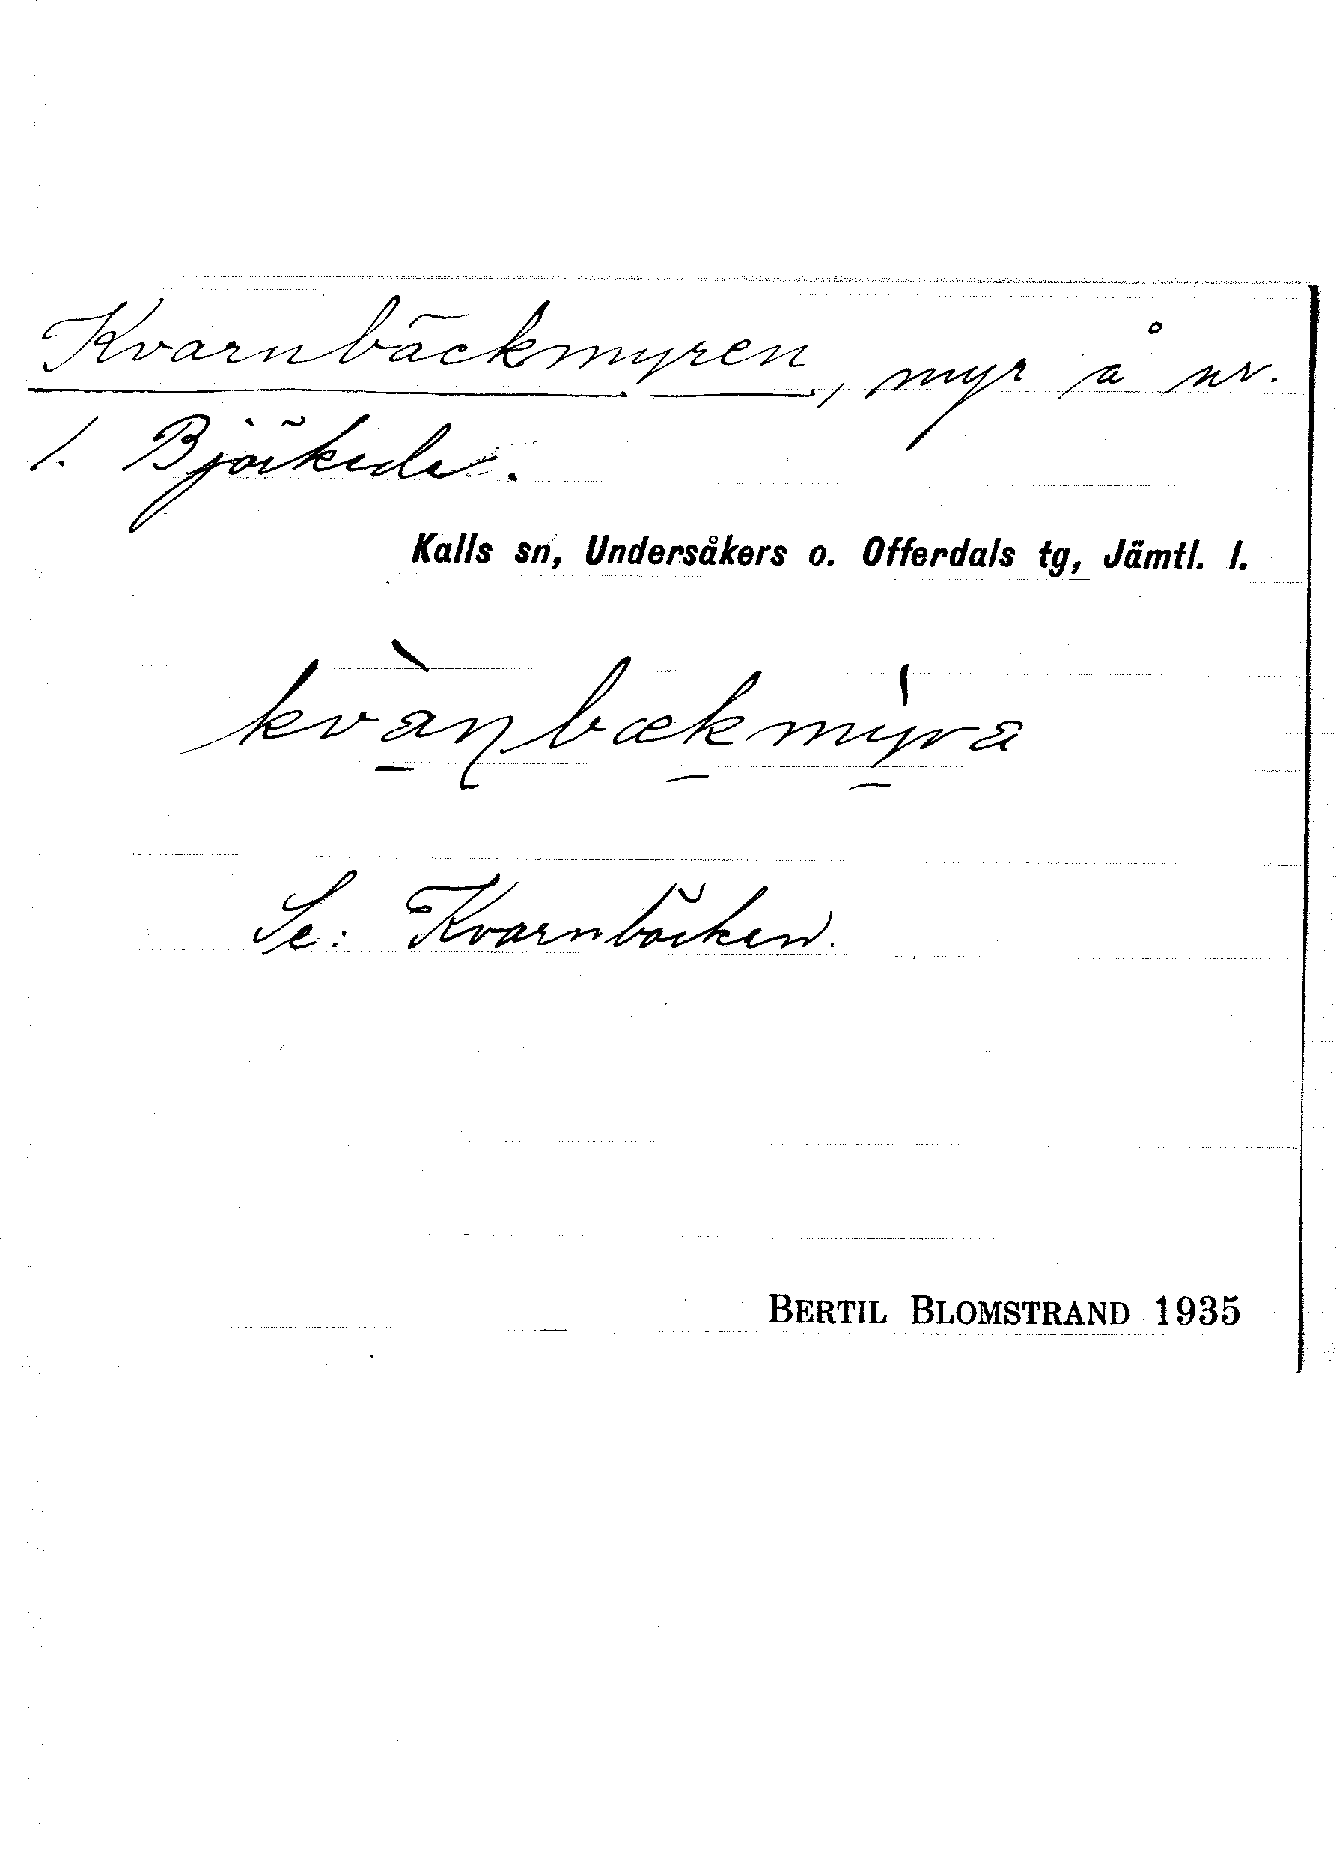 Kvarnbäckmyren, myr å nr.
1. Bjäkede.
Kalls sn, Undersåkers o. Offerdals tg, Jämtl. l.
kvànbækmýra
Se: Kvarnbäcken.
BERTIL BLOMSTRAND 1935